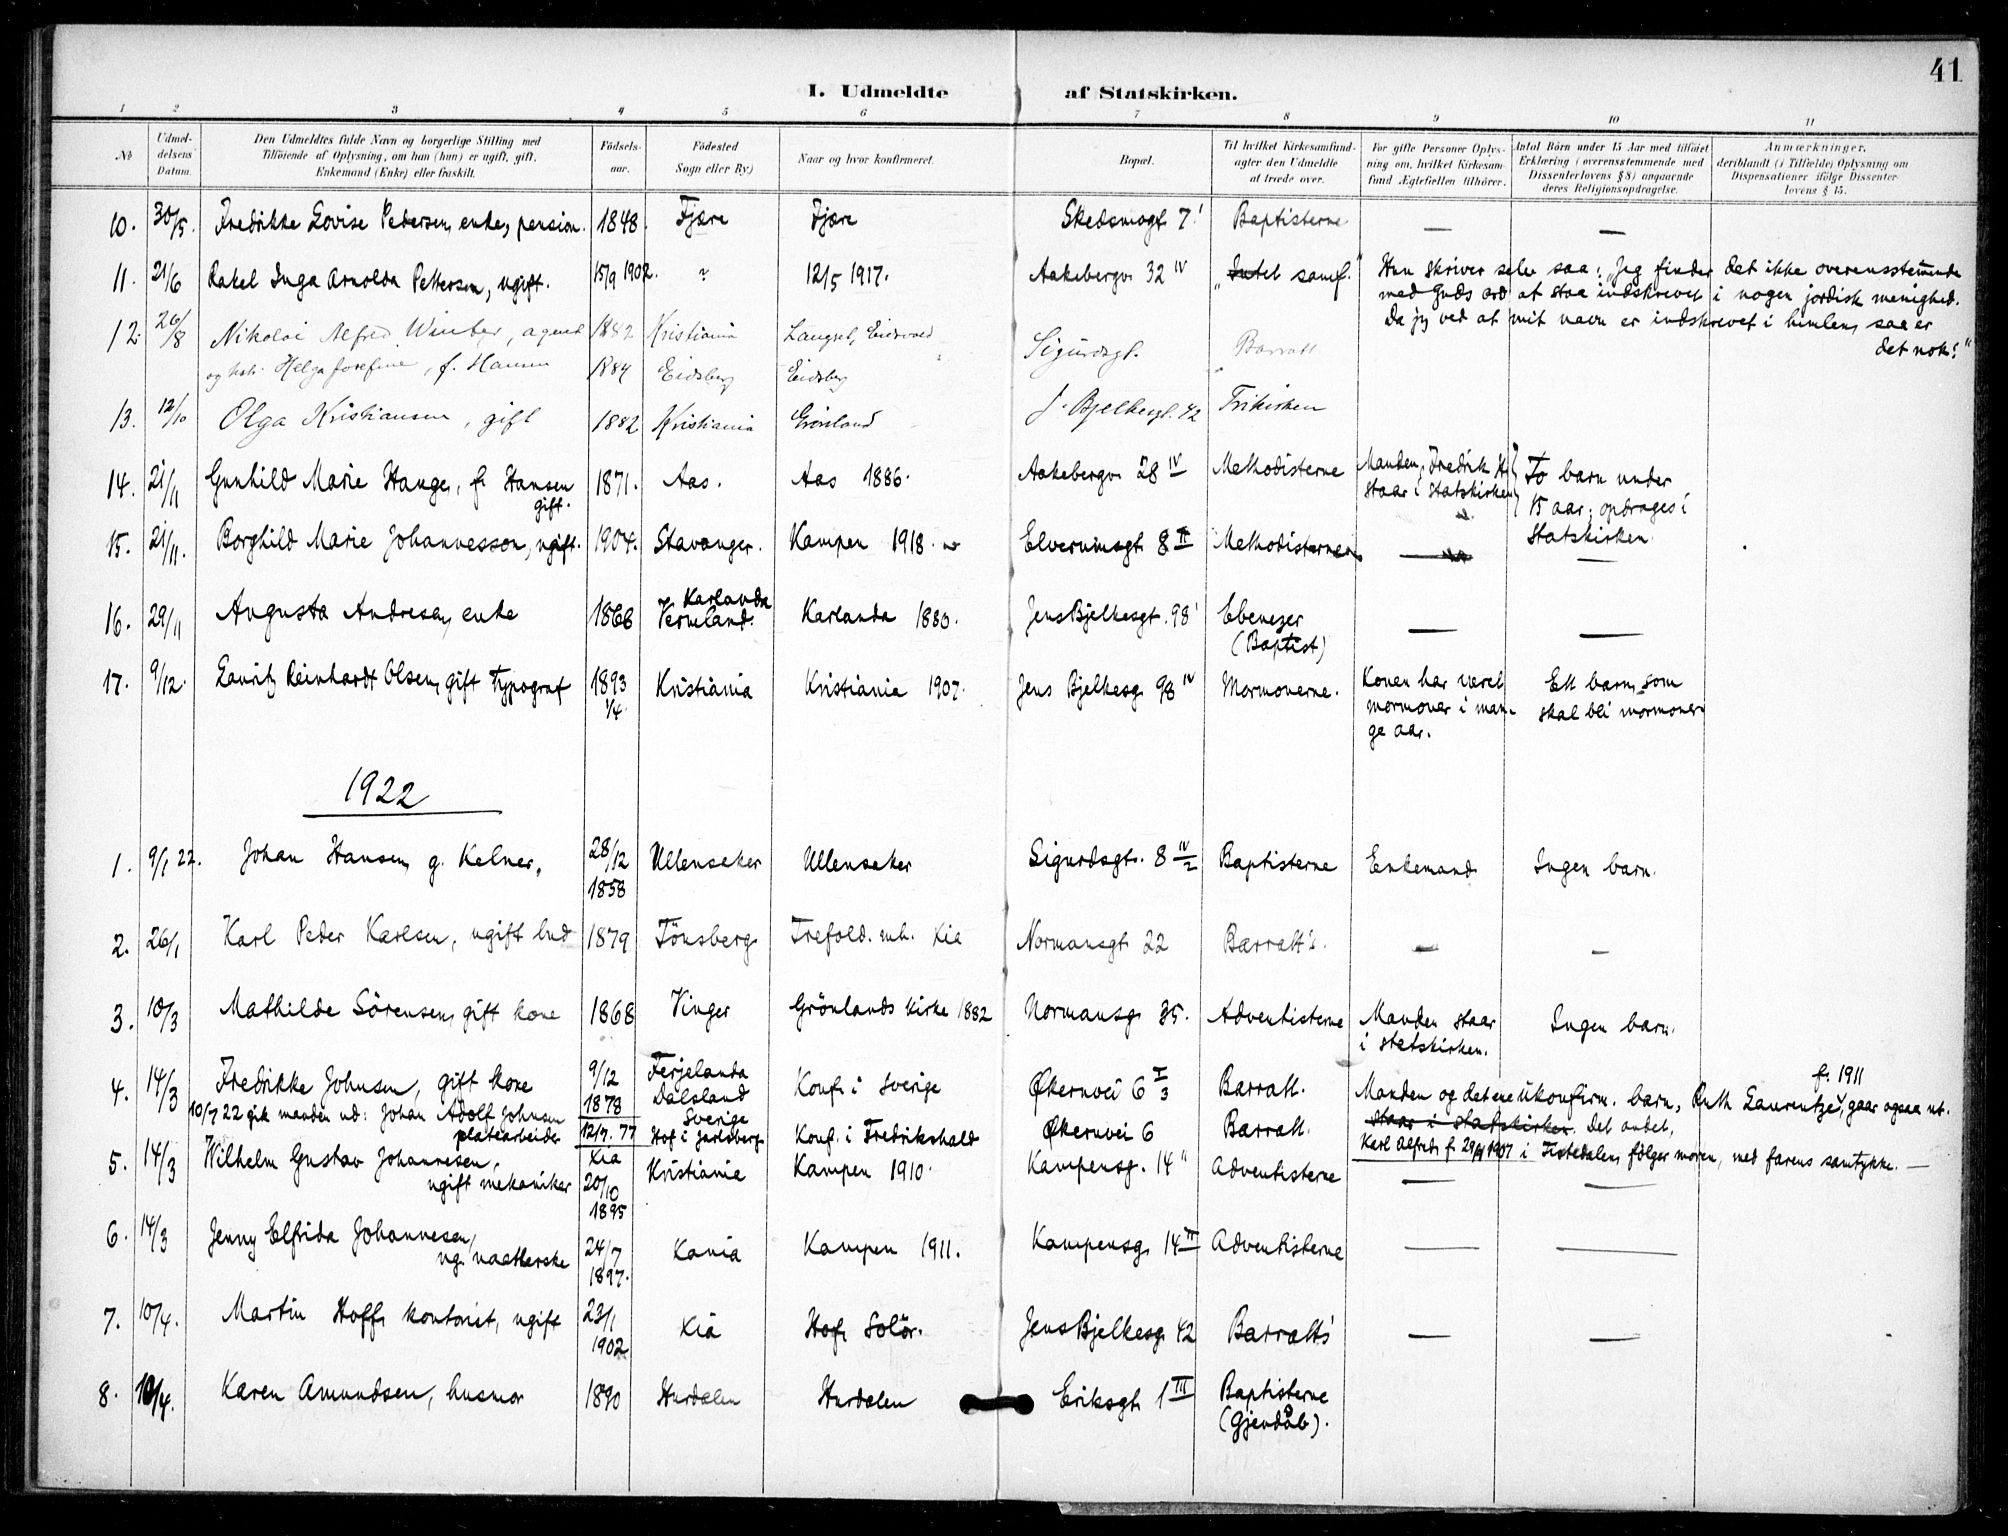 41
I. Udmeldte af Statskirken.
1 2 3 4 5 6 7 8 9 10 11
№
Udmel-
delsens
Datum.
Den Udmeldtes fulde Navn og borgerlige Stilling med
Tilføiende af Oplysning, om han (hun) er ugift, gift,
Enkemand (Enke) eller fraskilt.
Fødsels-
aar.
Fødested
Sogn eller By)
Naar og hvor konfirmeret.
Bopæl.
Til hvilket Kirkesamfund-
agter den Udmeldte
at træde over.
For gifte Personer Oplys-
ning om, hvilket Kirkesam-
fund Ægtefællen tilhører.
Antal Børn under 15 Aar med tilføiet
Erklæring (overensstemmende med
Dissenterlovens § 8) angaaende
deres Religionsopdragelse.
Anmærkninger,
deriblandt (i Tilfælde) Oplysning om
Dispensationer ifølge Dissenter
lovens § 15.
10. 30/5. Fredrikke Lovise Pedersen, enke, pension. 1848. Fjære Fjære Skedsmogt. 7 I Baptisterne — —
11. 21/6 Rakel Inga Arnolda Pettersen, ugift. 15/9 1902. ? 12/5 1917. Aakebergv. 32 IV „Intet samf.“ Hun skriver selv saa: „Jeg finder det ikke overensstemmende
med Guds ord at staa indskrevet i nogen jordisk menighed.
Da jeg ved at mit navn er indskrevet i himlen, saa er
det nok.“
12. 26/8 Nikolai Alfred Winter, agent 1882 Kristiania Langset, Eidsvold Sigurdsgt. Barratt
og hstr. Helga Josefine, f. Hansen 1884 Eidsberg Eidsberg
13. 12/10 Olga Kristiansen, gift 1882 Kristiania Grønland J. Bjelkesgt. 42 Frikirken
14. 21/11 Gunhild Marie Hauge, f. Hansen
gift. 1871. Aas. Aas 1886. Aakebergv. 28 IV Methodisterne Manden, Fredrik H.
staar i Statskirken To barn under
15 aar; opdrages i
Statskirken.
15. 21/11. Borghild Marie Johannesson, ugift. 1904. Stavanger. Kampen 1918. Elverumsgt. 8 II Methodisterne — —
16. 29/11 Augusta Andresen, enke 1866 Karlanda
Vermland. Karlanda 1880. Jens Bjelkesgt. 98 I Ebenezer
(Baptist) — —
17. 9/12. Lauritz Reinhardt Olsen, gift typograf 1893
1/4. Kristiania Kristiania 1907. Jens Bjelkesg. 98 IV Mormonerne. Konen har været
mormoner i man-
ge aar. Ett barn, som
skal bli mormoner.
1922
1. 9/1 22. Johan Hansen, g. Kelner. 28/12
1858 Ullensaker Ullensaker Sigurdsgt. 8 IV/2 Baptisterne Enkemand Ingen barn.
2. 26/1 Karl Peder Karlsen, ugift bud 1879 Tönsberg. Trefold. mh. Kia Normansgt. 22 Barratt's. — —
3. 10/3 Mathilde Sörensen, gift kone 1868 Vinger Grönlands kirke 1882 Normansg. 35. Adventisterne Manden staar
i statskirken. Ingen barn.
4. 14/3 Fredrikke Johnsen, gift kone 9/12
1878 Ferjelanda
Dalsland
Sverige Konf. i Sverige Økernvei 6 I/3 Barratt. Manden og det ene ukonfirm. barn, Ruth Laurentze, f. 1911 gaar ogsaa ut.
staar i statskirken. Det andet,
Karl Alfred f. 29/4 1907 i Tistedalen, følger moren, med farens samtykke. —
10/7 22 gik manden ud: Johan Adolf Johnsen
platearbeider 12/7. 77 Hof i Jarlsberg Konf. i Fredrikshald Økernvei 6 Barratt.
5. 14/3 Wilhelm Gustav Johannesen,
ugift mekaniker 20/10
1895 Kia
Kristiania Kampen 1910. Kampensg. 14 II Adventisterne — —
6. 14/3 Jenny Elfrida Johannesen,
ug. naatlerske 24/7
1897. Kania Kampen 1911. Kampensg. 14 II Adventisterne — —
7. 10/4. Martin Hoff, kontorist, ugift 23/1
1902 Kia Hof, Solör. Jens Bjelkesg. 42 Barratts' — —
8. 18/4. Karen Amundsen, husmor 1890 Hurdalen Hurdalen Eriksgt. 1 III Baptisterne
(Gjendåb).